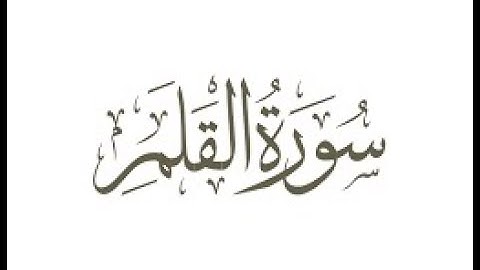 سُورَةُ الْقَلَمِ